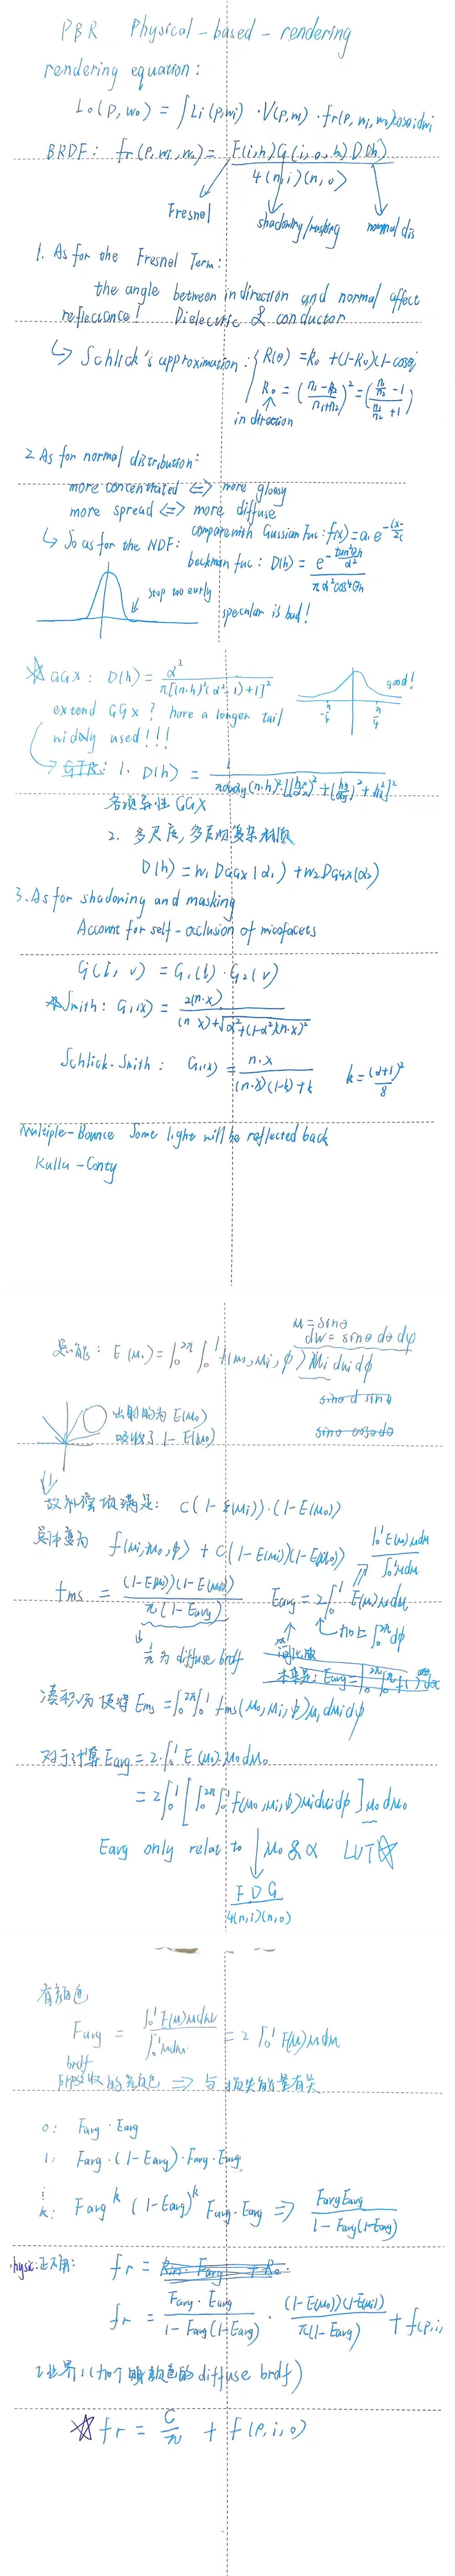 PBR Physical-based-rendering
rendering equation:
Lo(p, wo) = ∫Li(p,wi) · V(p,wi) · fr(p, wi, wo)cosθi dwi
BRDF: fr(p, wi, wo) = F(i,h)G(i,o,h)D(h) / 4(n,i)(n,o)
Fresnel
shadowing/masking
normal dis
1. As for the Fresnel Term:
the angle between in direction and normal affect
reflectance! Dielectric & conductor
↳ Schlick's approximation: { R(θ) = R₀ + (1-R₀)(1-cosθ)
R₀ = ((n₁-n₂)/(n₁+n₂))² = ((n₁/n₂ - 1)/(n₁/n₂ + 1))
in direction
2. As for normal distribution:
more concentrated <=> more glossy
more spread <=> more diffuse
compare with Gussian Func: f(x) = a. e
↳ So as for the NDF:
beckman func: D(h) = e^(-tan²θh/α²) / πα²cos⁴θh
stop too early
specular is bad!
☆ GGX: D(h) = α² / π[(n·h)²(α²-1)+1]²
good!
extend GGX? have a longer tail
widely used!!!
→ GTR: 1. D(h) = 1 / παxαy(n·h)²[(hx/αx)² + (hy/αy)² + h²]²
各项异性 GGX
2. 多尺度, 多层的复杂材质
D(h) = w₁ DGGX(α₁) + w₂DGGX(α₂)
3. As for shadowing and masking
Account for self-occlusion of micofacets
G(l, v) = G₁(l) · G₂(v)
☆Smith: G₁(x) = 2(n·x) / (n·x)+√(α²+(1-α²)(n·x)²)
Schlick-Smith: G₁(x) = n·x / (n·x)(1-k)+k k = (α+1)²/8
Multiple-Bounce Some light will be reflected back
Kulla-Conty
μ = sinθ
dw = sinθ dθ dφ
总能: E(μ₀) = ∫₀^2π ∫₀^1 f(μ₀, μi, φ) μi dμi dφ
sinθ d sinθ
出射的为 E(μ₀)
吸收了 1 - E(μ₀)
sinθ cosθ dθ
故补偿项满足: C(1-E(μi))·(1-E(μ₀))
总体变为 f(μi, μ₀, φ) + C(1-E(μi))(1-E(μ₀))
∫₀^1 E(μ)μdμ / ∫₀^1 μdμ
fms = (1-E(μ₀))(1-E(μi)) / π(1-Eavg) Eavg = 2∫₀^1 E(μ)μdμ
加上 ∫₀^2π dφ
1/π 为 diffuse brdf
凑积分 使得 Ems = ∫₀^2π∫₀^1 fms(μ₀, μi, φ)μi dμi dφ
对于计算 Eavg = 2·∫₀^1 E(μ₀)·μ₀dμ₀
= 2∫₀^1 [∫₀^2π∫₀^1 f(μ₀, μi, φ)μidμidφ]μ₀dμ₀
Eavg only relat to μ₀ & α LUT☆
FDG / 4(n,i)(n,o)
有颜色
Favg = ∫₀^1 F(μ)μdμ / ∫₀^1 μdμ = 2∫₀^1 F(μ)μdμ
brdf
所吸收的为颜色 => 与损失能量有关
0: Favg · Eavg
1: Favg · (1-Eavg) · Favg · Eavg
⋮
k: Favg^k (1-Eavg)^k Favg·Eavg => FavgEavg / 1-Favg(1-Eavg)
fr =
fr = Favg·Eavg / 1-Favg(1-Eavg) · (1-E(μ₀))(1-E(μi)) / π(1-Eavg) + f(p,i,
工业界: (加个颜色的 diffuse brdf)
☆ fr = C/π + f(p,i,o)